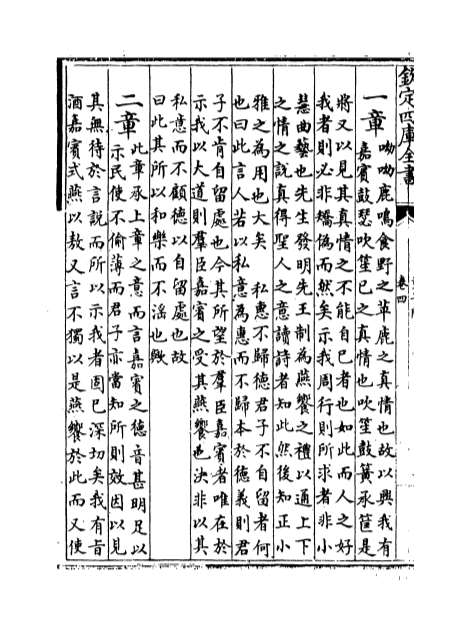 欽定四庫全書
卷四
一章
呦呦鹿鳴食野之苹鹿之真情也故以興我有
嘉賓鼓瑟吹笙已之真情也吹笙鼓簧承筐是
將又以見其真情之不能自已者也如此而人之好
我者則必非矯偽而然矣示我周行則所求者非小
慧曲藝也先生發明先王制為燕饗之禮以通上下
之情之說真得聖人之意讀詩者知此然後知正小
雅之為用也大矣 私惠不歸德君子不自留者何
也曰此言人若以私意為惠而不歸本於德義則君
子不肯自留處也今其所望於羣臣嘉賓者唯在於
示我以大道則羣臣嘉賓之受其燕饗也決非以其
私意而不顧德以自留處也故
曰此其所以和樂而不淫也歟
二章
此章承上章之意而言嘉賓之德音甚明足以
示民使不偷薄而君子亦當知所則效因以見
其無待於言說而所以示我者固已深切矣我有旨
酒嘉賓式燕以敖又言不獨以是燕饗於此而又使